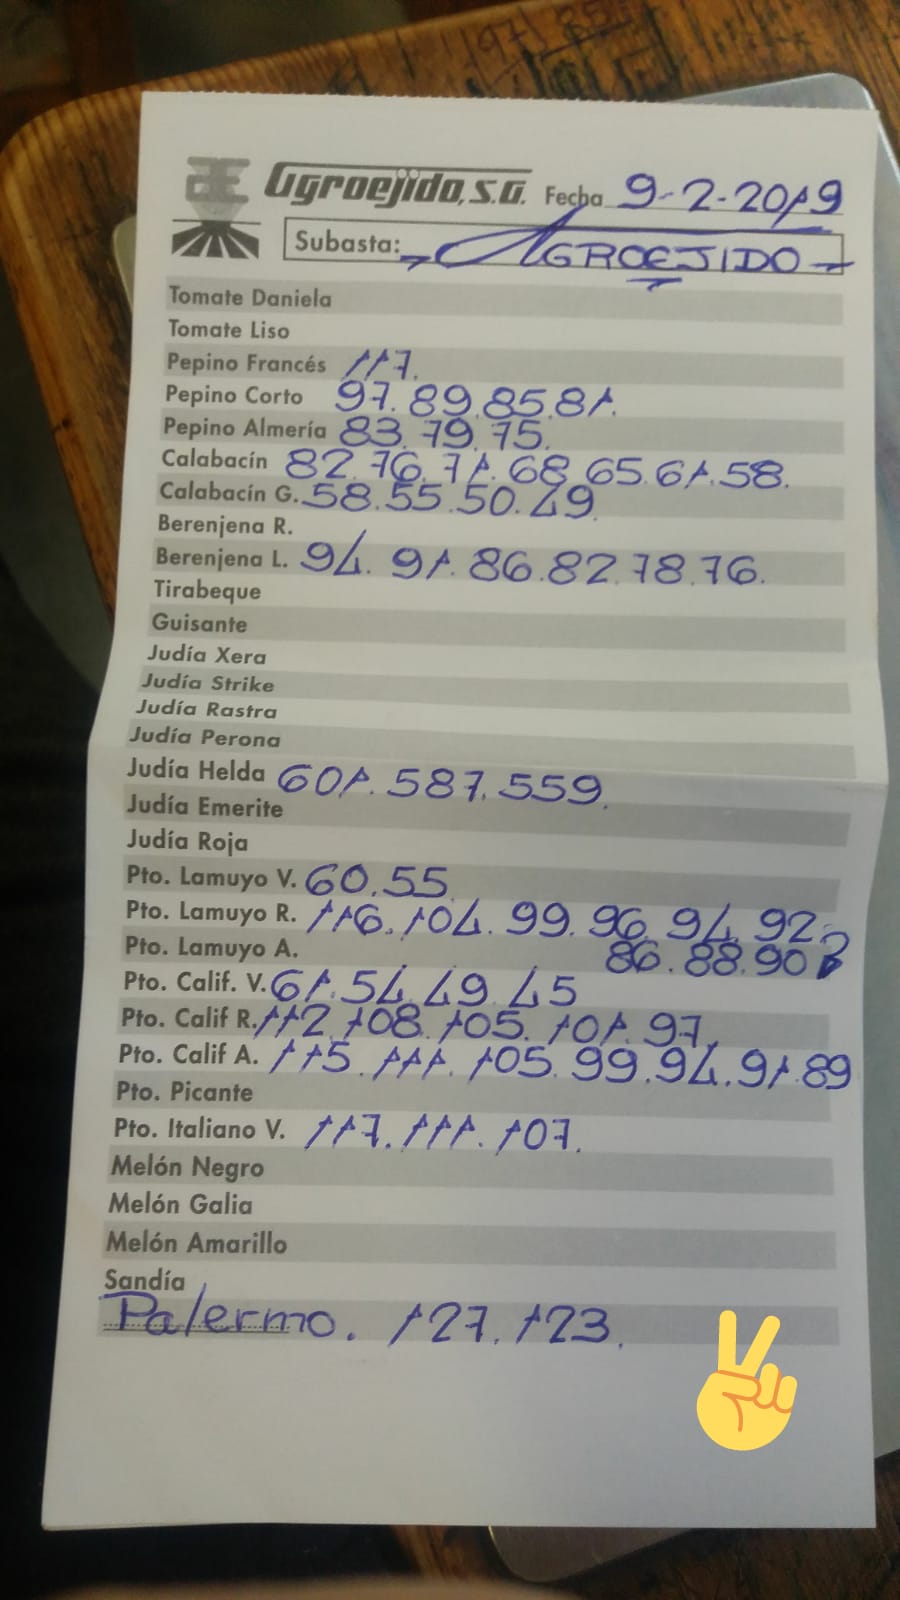 Agroejido, S.A. Fecha 9-2-2019
Subasta: AGROEJIDO
Tomate Daniela
Tomate Liso
Pepino Francés 117.
Pepino Corto 97.89.85.81.
Pepino Almería 83.79.75.
Calabacín 82.76.71.68.65.61.58.
Calabacín G. 58.55.50.49.
Berenjena R.
Berenjena L. 94.91.86.82.78.76.
Tirabeque
Guisante
Judía Xera
Judía Strike
Judía Rastra
Judía Perona
Judía Helda 601.587.559.
Judía Emerite
Judía Roja
Pto. Lamuyo V. 60.55.
Pto. Lamuyo R. 116.104.99.96.94.92
Pto. Lamuyo A. 86.88.90
Pto. Calif. V. 61.54.49.45
Pto. Calif R. 112.108.105.101.97.
Pto. Calif A. 115.111.105.99.94.91.89
Pto. Picante
Pto. Italiano V. 117.111.107.
Melón Negro
Melón Galia
Melón Amarillo
Sandía
Palermo. 127.123.